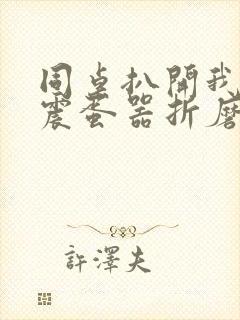 同桌扒開我
震蛋器折磨
許澤夫